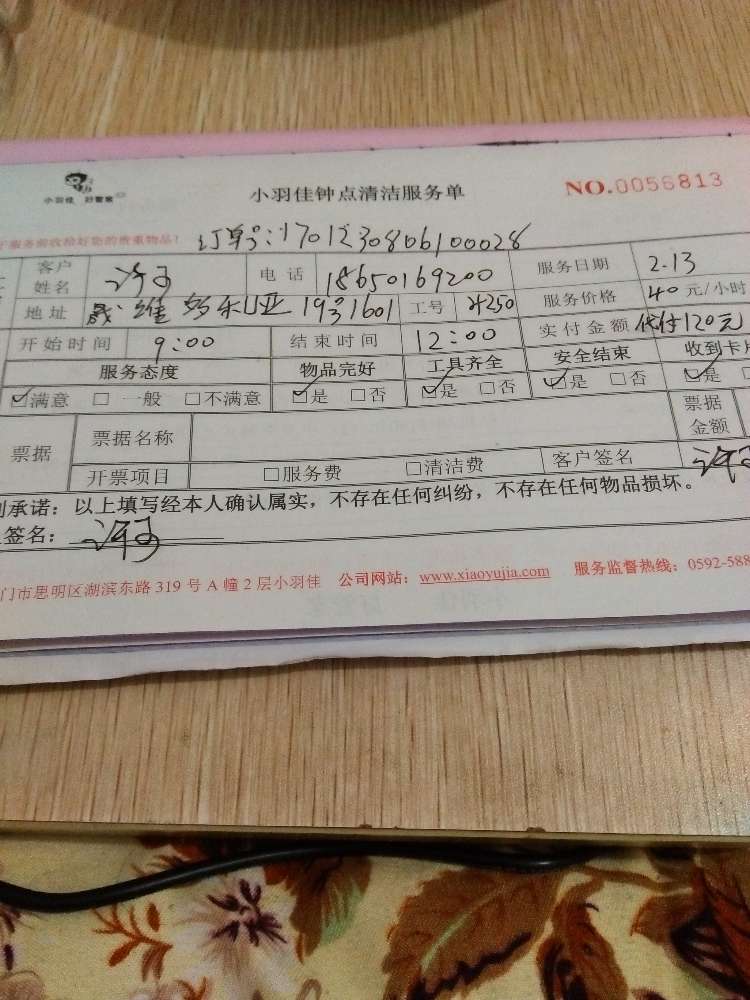 小羽佳 好管家
小羽佳钟点清洁服务单
NO.0056813
服务前收拾好您的贵重物品!
订单号:1701230806100028
客户姓名 电话 18650169200 服务日期 2.13
地址 维多利亚 19号1601 工号 服务价格 40 元/小时
开始时间 9:00 结束时间 12:00 实付金额 代付120元
服务态度 物品完好 工具齐全 安全结束 收到卡片
☑满意 □一般 □不满意 ☑是 □否 ☑是 □否 ☑是 □否 ☑是
票据 票据名称 票据金额
开票项目 □服务费 □清洁费 客户签名
承诺:以上填写经本人确认属实,不存在任何纠纷,不存在任何物品损坏。
签名:
门市思明区湖滨东路 319 号 A 幢 2 层小羽佳 公司网站:www.xiaoyujia.com 服务监督热线:0592-588